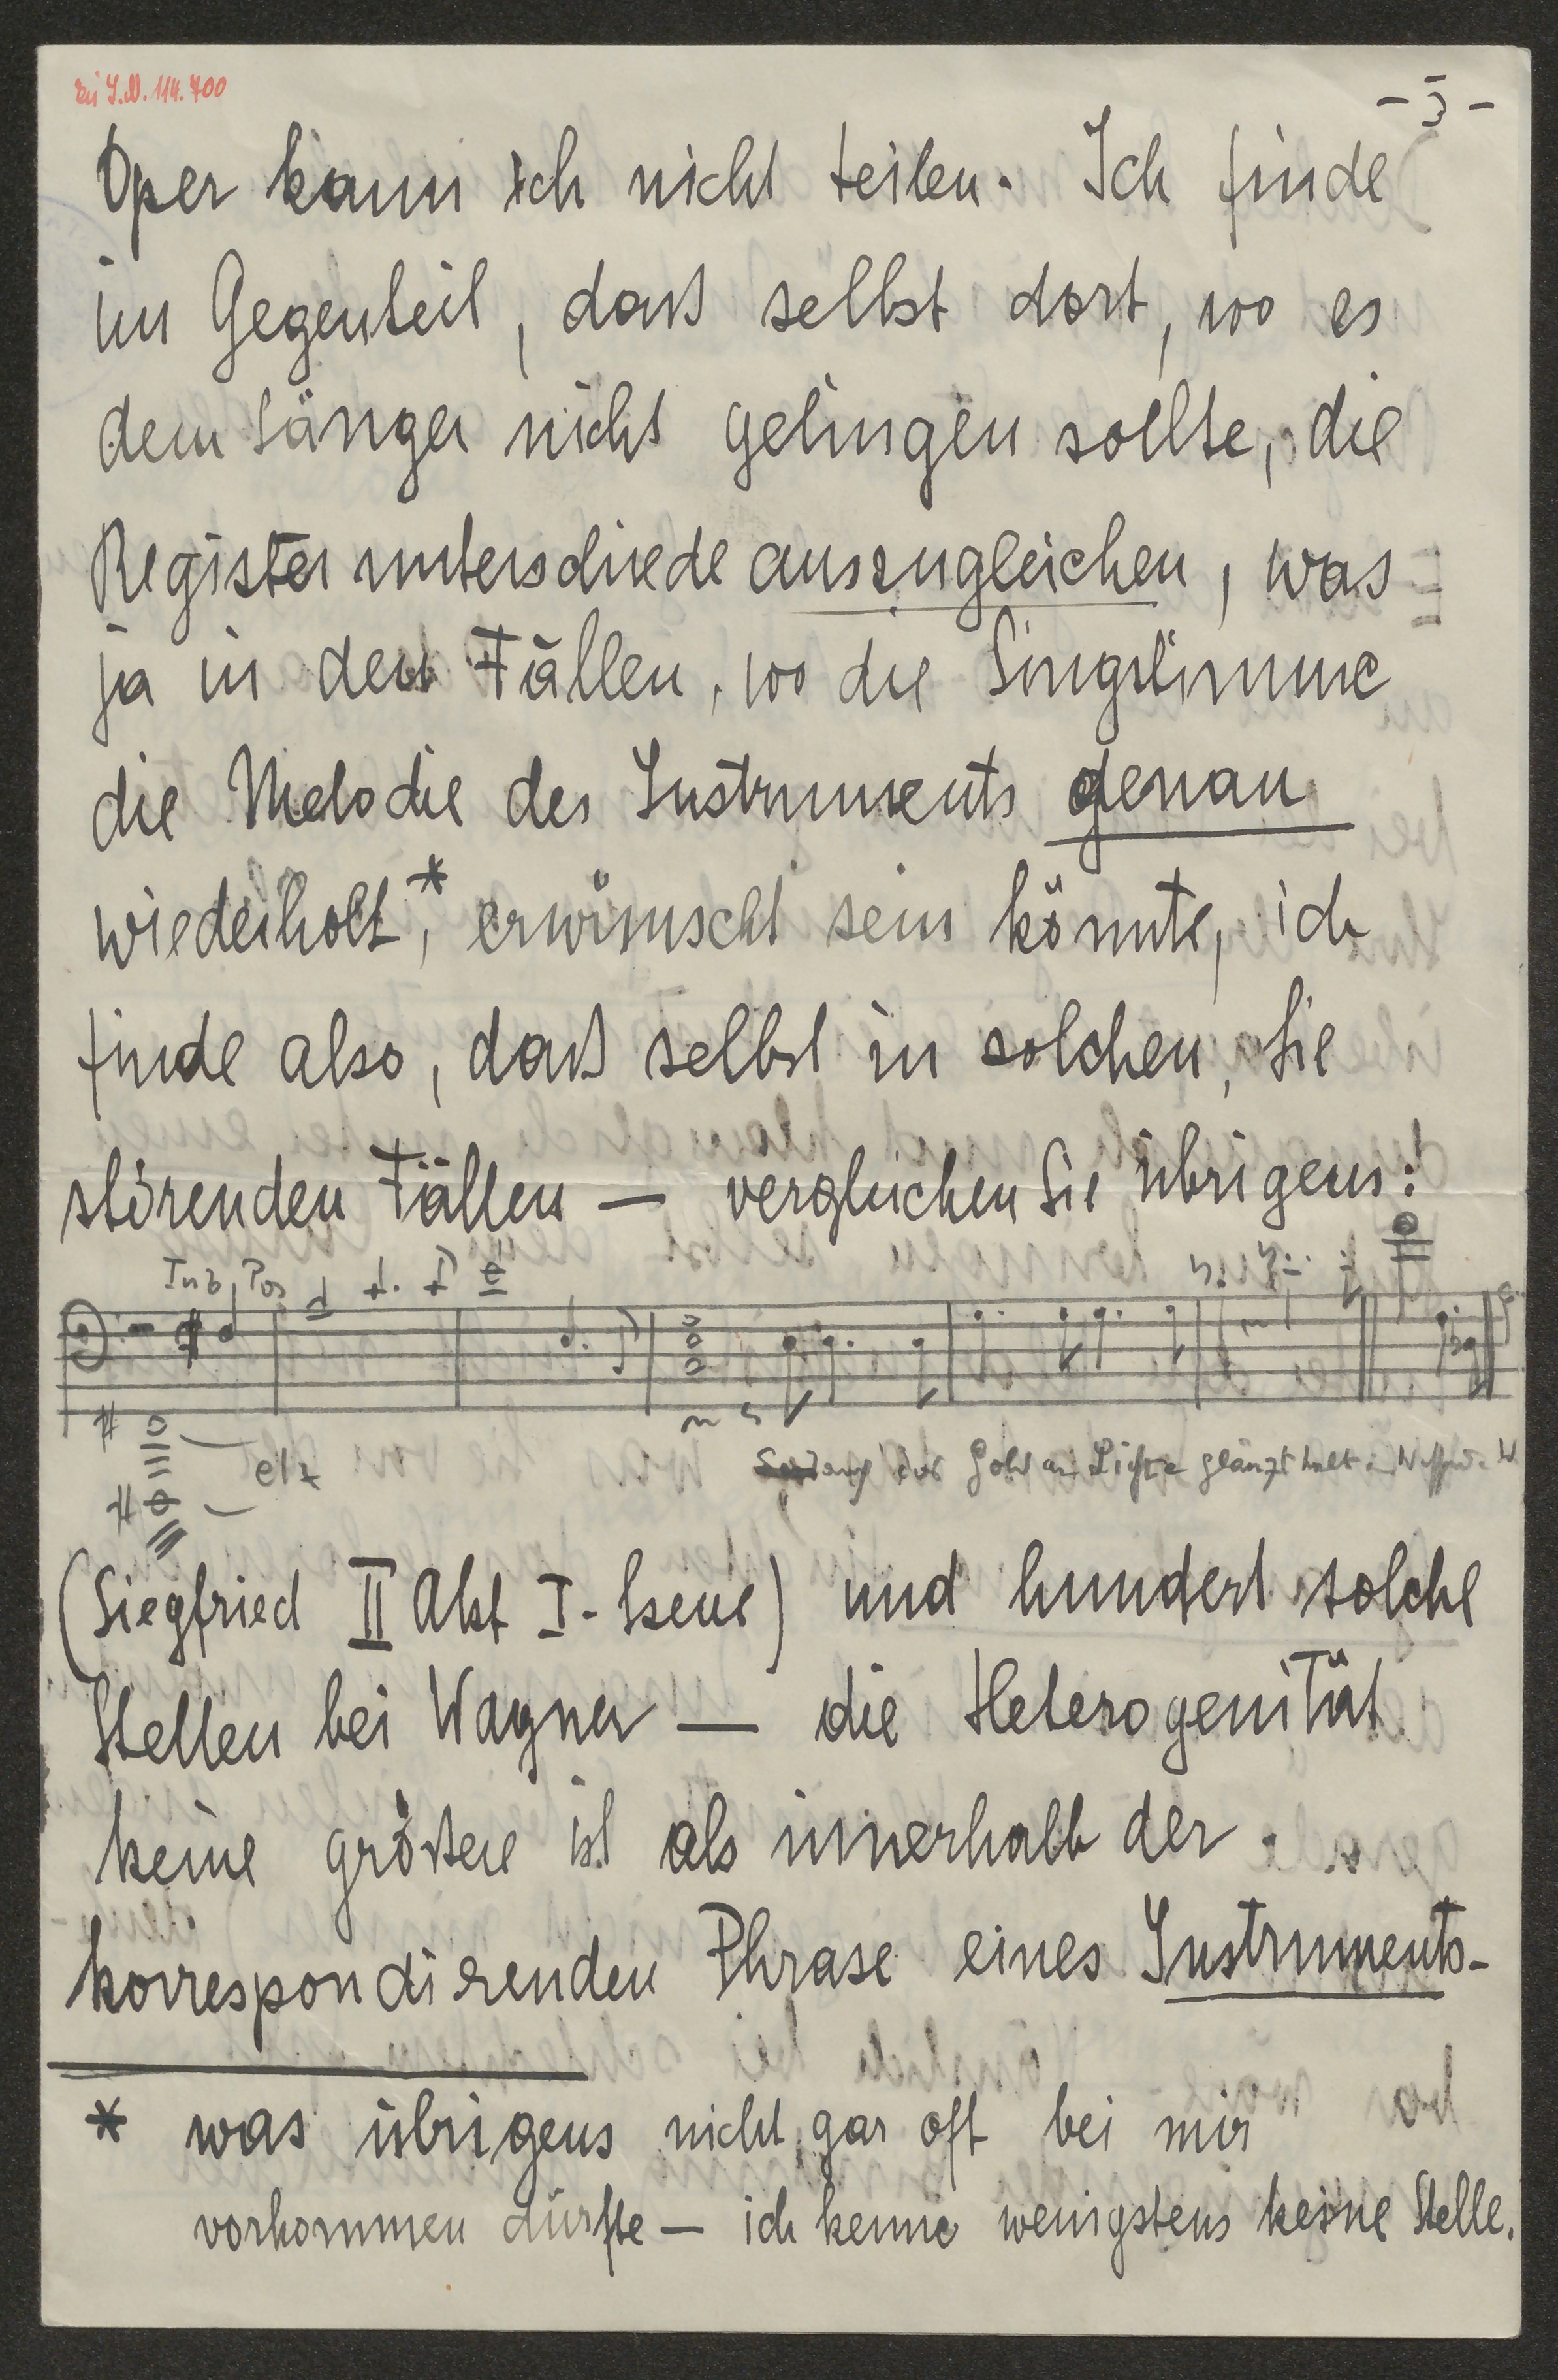 zu I.N. 114.700
- 5 -
Oper kann ich nicht teilen. Ich finde
im Gegenteil, daß selbst dort, wo es
dem Sänger nicht gelingen sollte, die
Registerunterschiede auszugleichen, was
ja in den Fällen, wo die Singstimme
die Melodie des Instruments genau
wiederholt,* erwünscht sein könnte, ich
finde also, daß selbst in solchen, Sie
störenden Fällen — vergleichen Sie übrigens:
Tub, Pos
etz
Gold am Lichte glänzt halt
(Siegfried II Akt I. Szene) und hundert solche
Stellen bei Wagner — die Heterogenität
keine größere ist als innerhalb der
korrespondirenden Phrase eines Instruments-
* was übrigens nicht gar oft bei mir
vorkommen dürfte — ich kenne wenigstens keine Stelle.